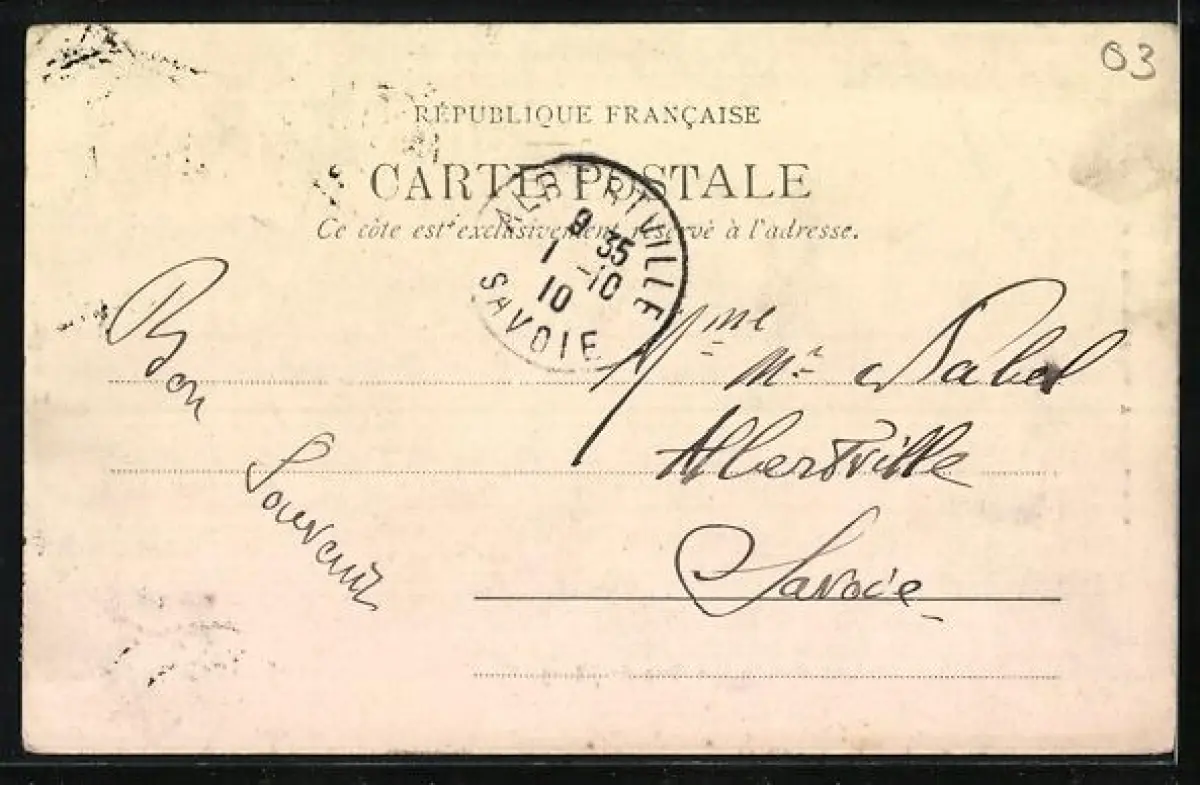 03
RÉPUBLIQUE FRANÇAISE
CARTE POSTALE
Ce côté est exclusivement réservé à l'adresse.
ALBERTVILLE
9 35
1 -10
10
SAVOIE
Bon
Souvenir
Mme
Albertville
Savoie